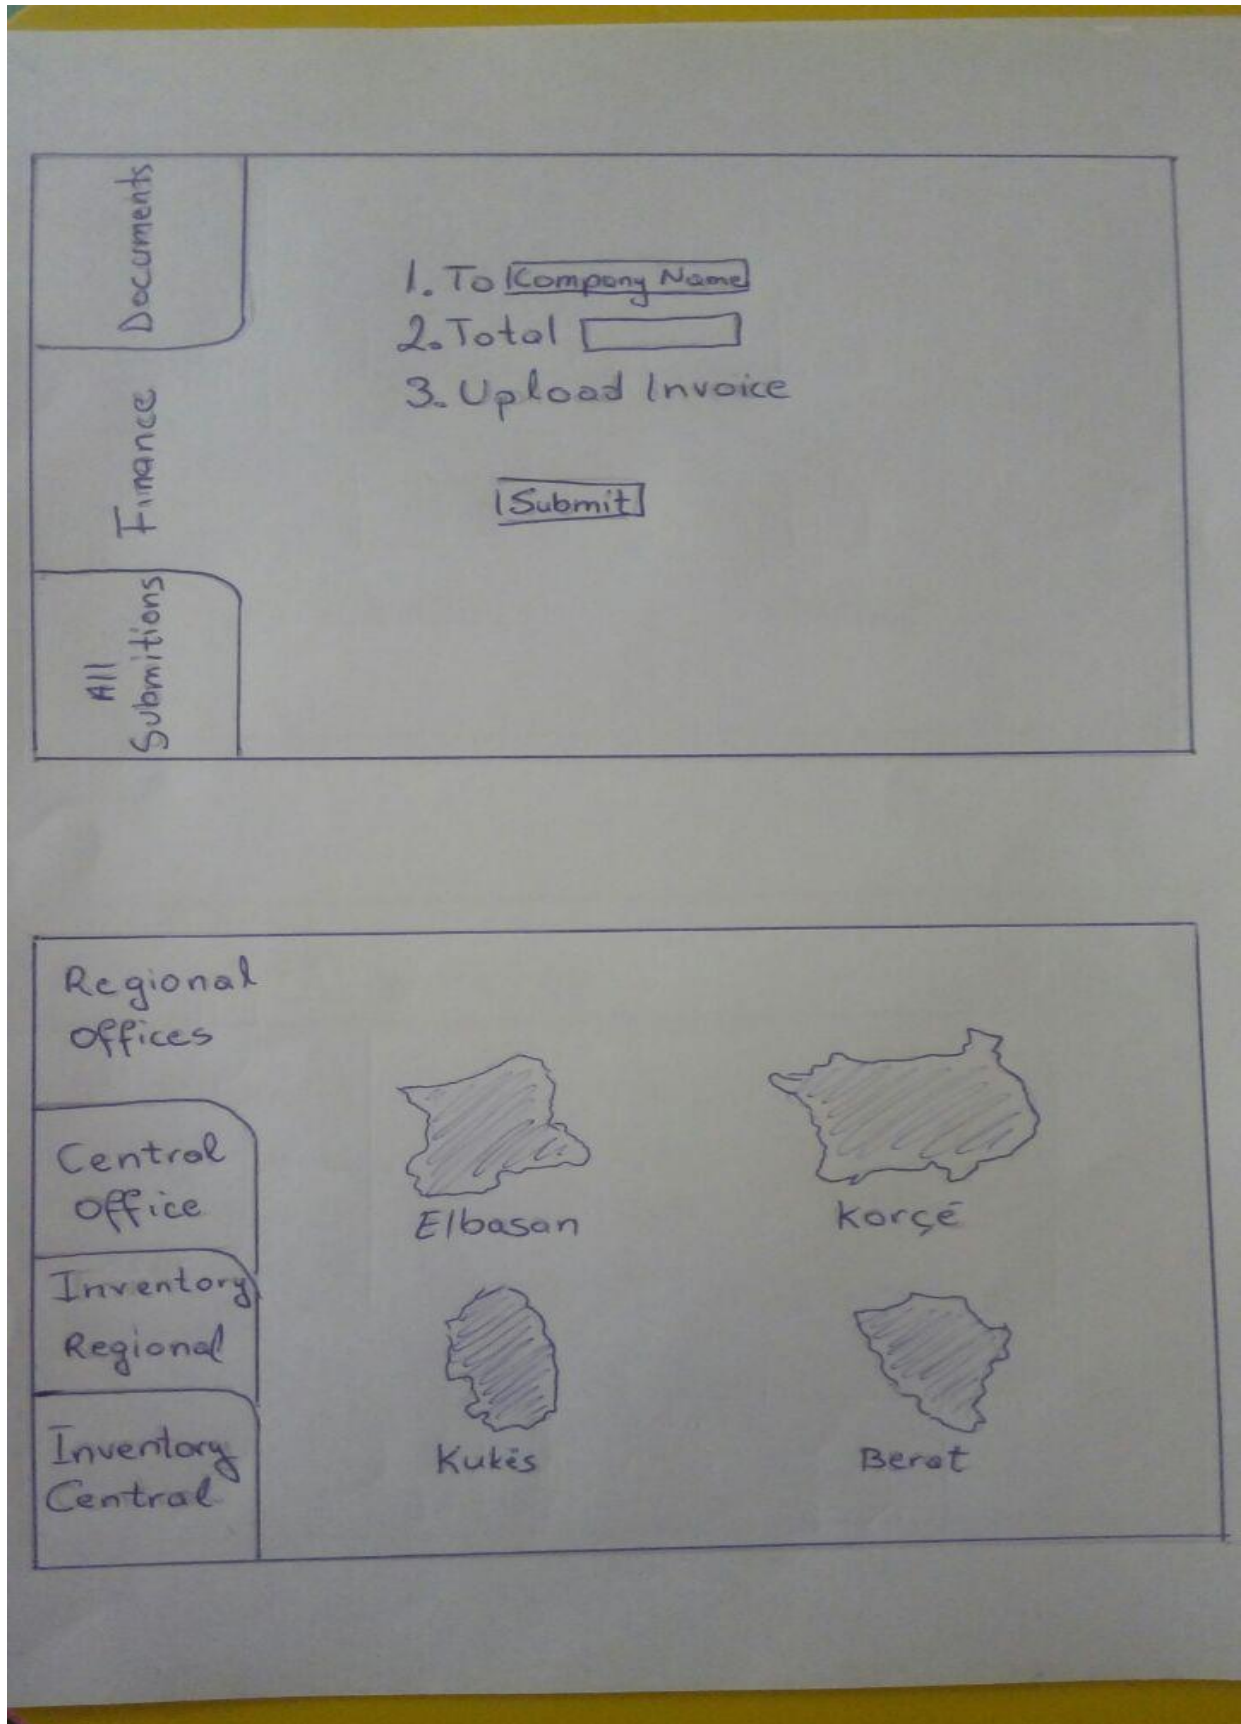 Documents
Finance
All
Submitions
1. To Company Name
2. Total
3. Upload Invoice
Submit
Regional
Offices
Central
Office
Inventory
Regional
Inventory
Central
Elbasan
Korçë
Kukës
Berat